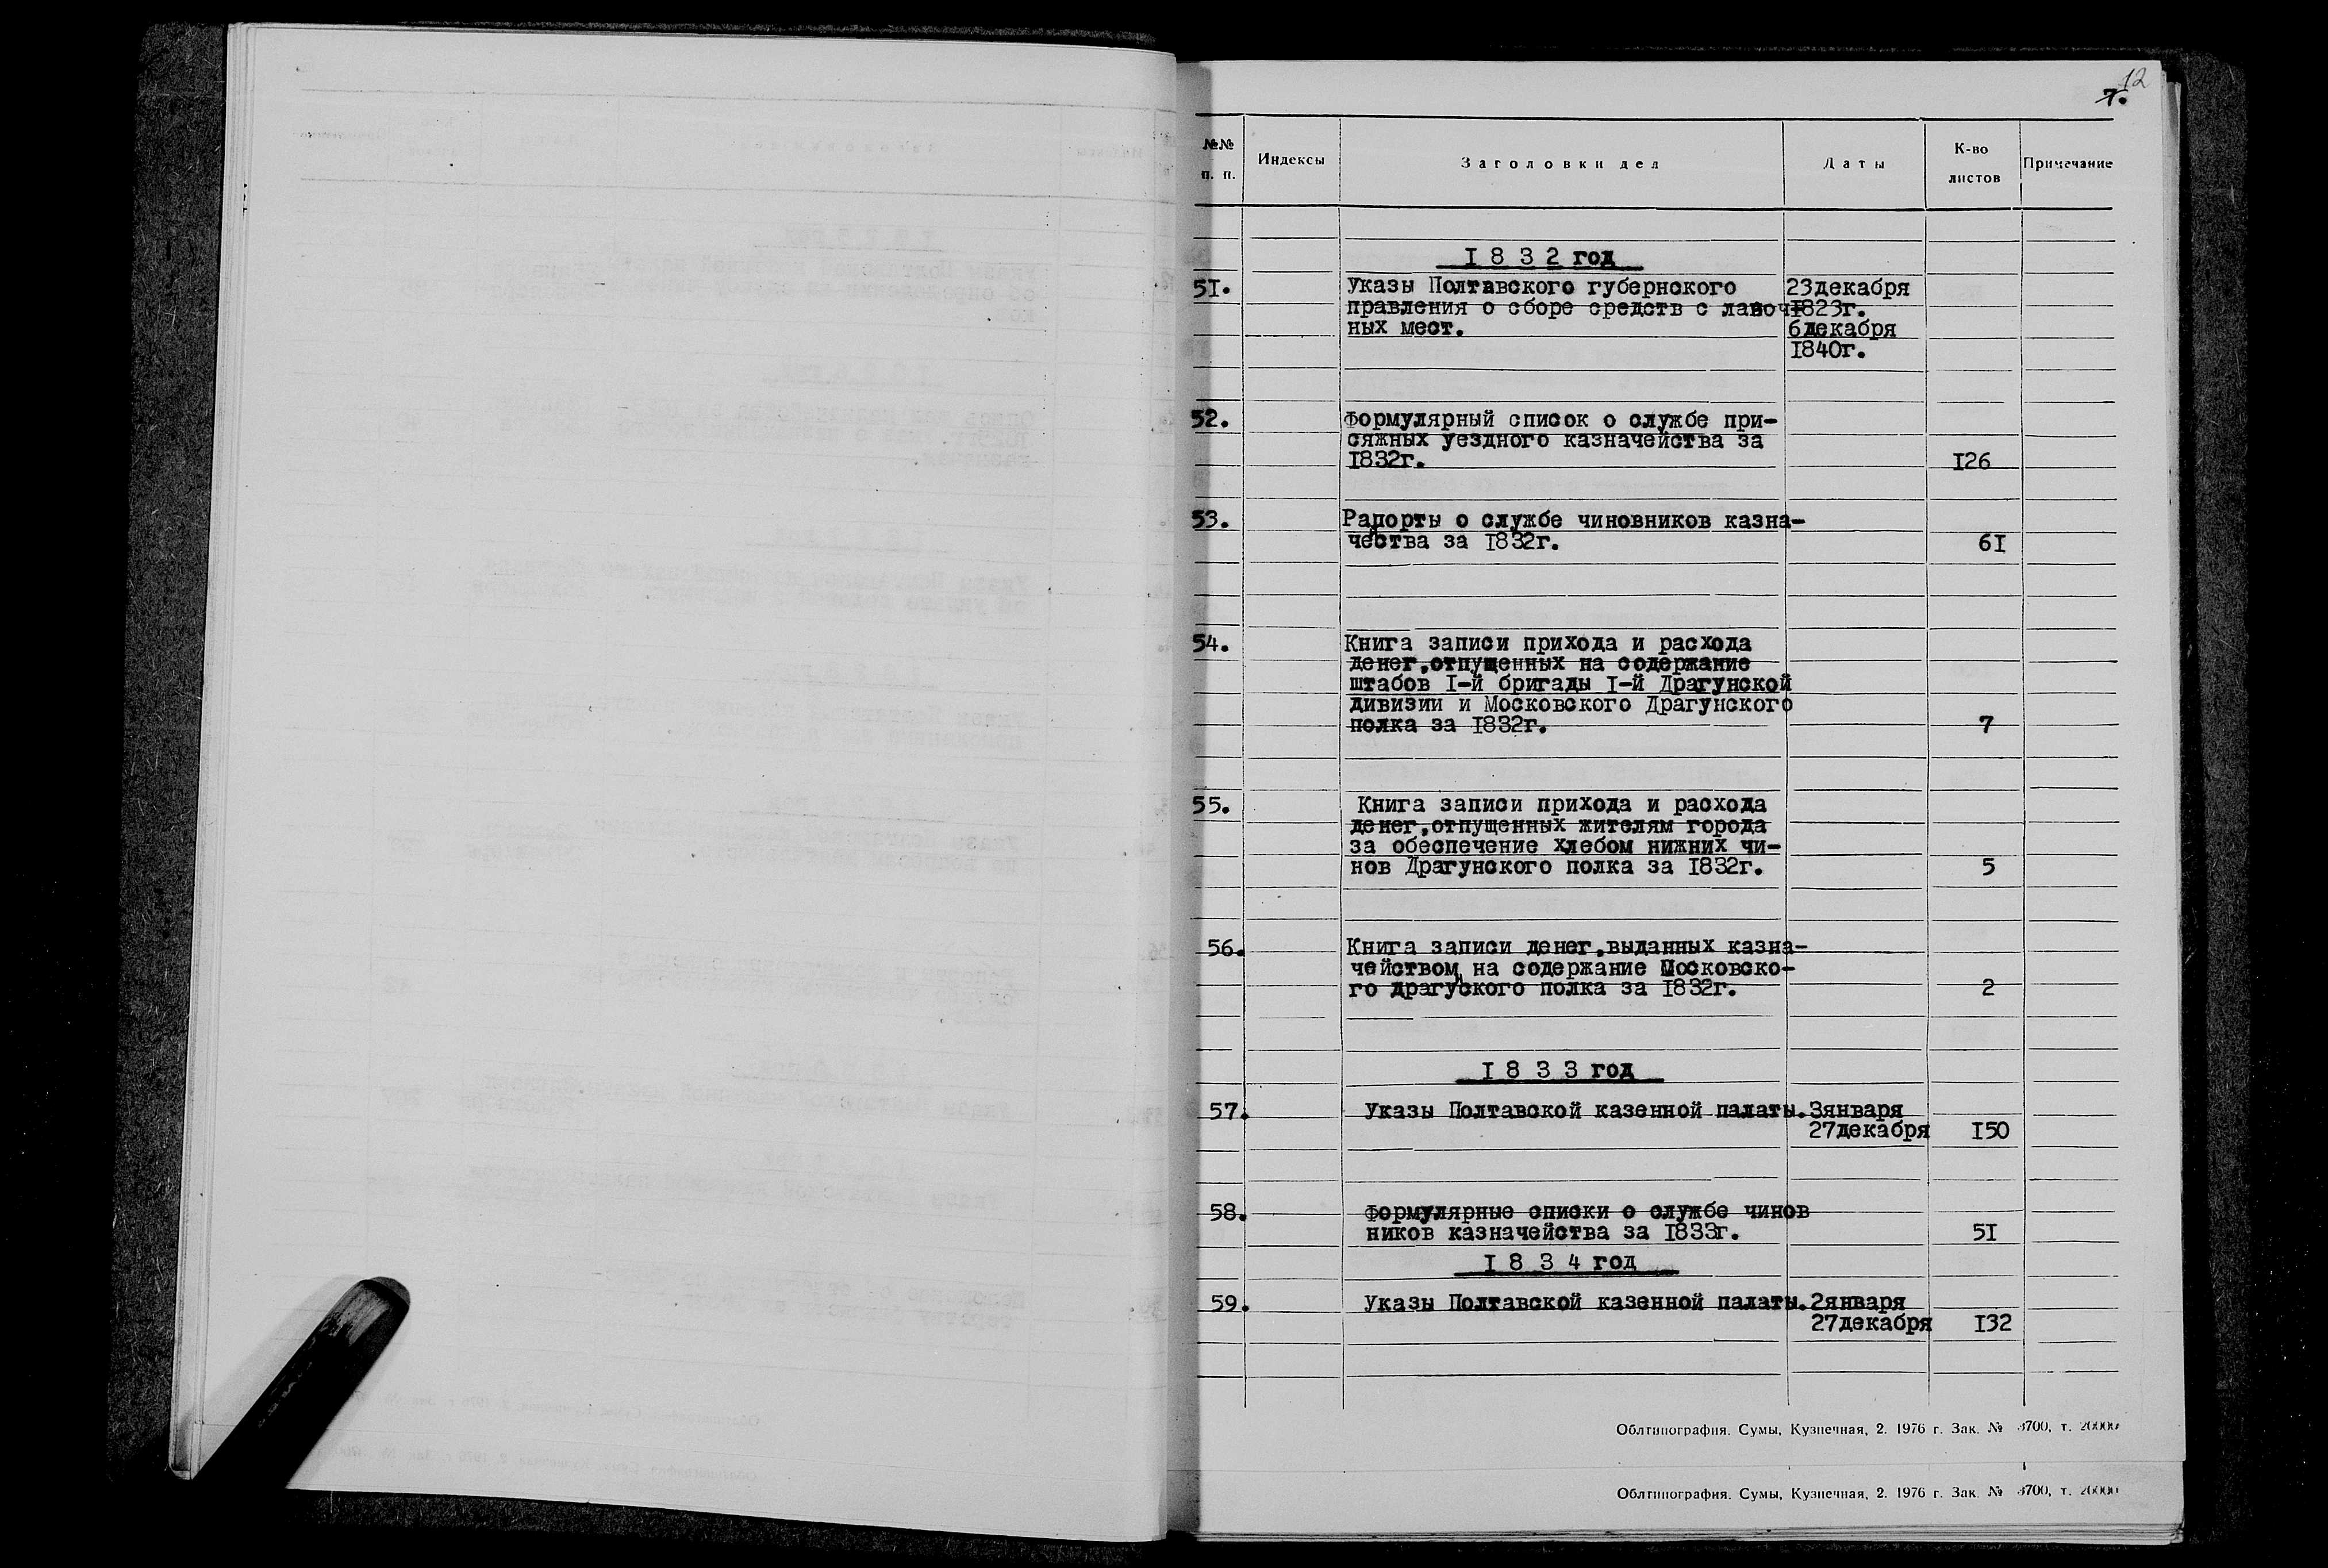 12
7.
№№ п. п. Индексы Заголовки дел Даты К-во листов Примечание
1832 год
51. Указы Полтавского губернского 23декабря
правления о сборе средств с лавоч- 1823г.
ных мест. 6декабря
1840г.
52. Формулярный список о службе при-
сяжных уездного казначейства за
1832г. 126
53. Рапорты о службе чиновников казна-
чества за 1832г. 61
54. Книга записи прихода и расхода
денег,отпущенных на содержание
штабов I-й бригады I-й Драгунской
дивизии и Московского Драгунского
полка за 1832г. 7
55. Книга записи прихода и расхода
денег,отпущенных жителям города
за обеспечение хлебом нижних чи-
нов Драгунского полка за 1832г. 5
56. Книга записи денег,выданных казна-
чейством на содержание Московско-
го драгуского полка за 1832г. 2
1833 год
57. Указы Полтавской казенной палаты. 3января
27декабря 150
58. Формулярные списки о службе чинов
ников казначейства за 1833г. 51
1834 год
59. Указы Полтавской казенной палаты. 2января
27декабря 132
Облтипография. Сумы, Кузнечная, 2. 1976 г. Зак. № 3700, т. 20000
Облтипография. Сумы, Кузнечная, 2. 1976 г. Зак. № 3700, т. 20000